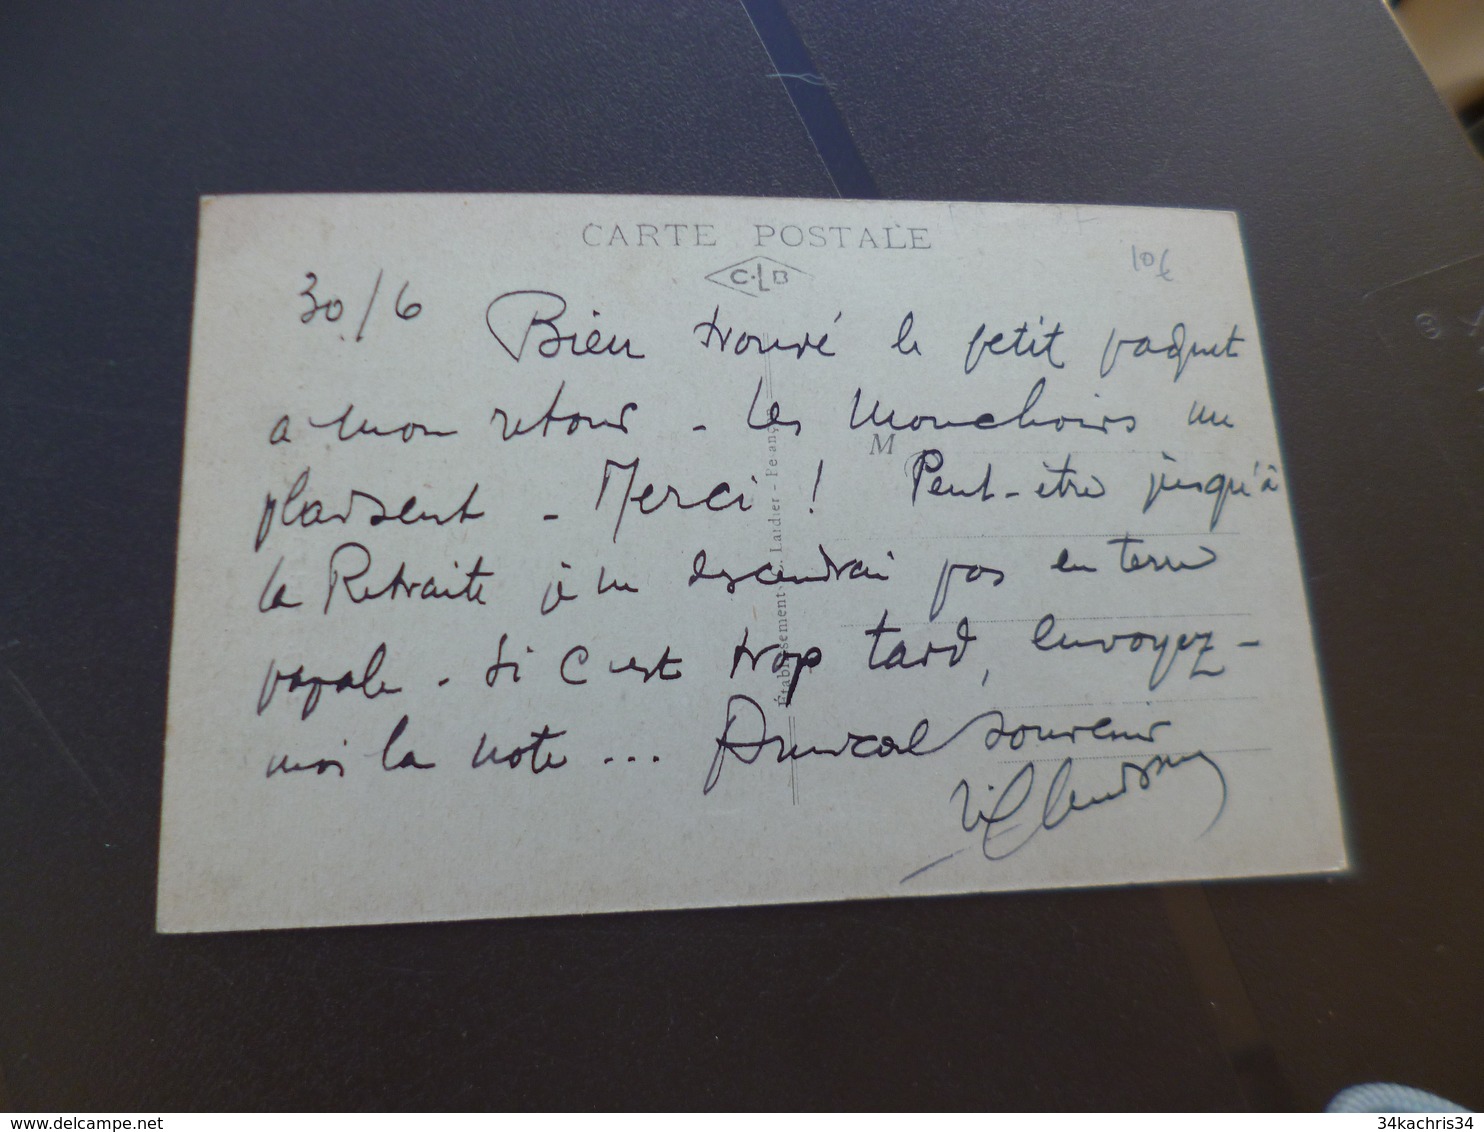 CARTE POSTALE
C.L.B
10€
30/6 Bien trouvé le petit paquet
a mon retour - Les mouchoirs me
plaisent - Merci ! Peut-être jusqu'à
la Retraite je ne descendrai pas en terre
papale. Si c'est trop tard, envoyez-
moi la note ... Amical souvenir
M
Établissement Laidier - Besançon
34kachris34